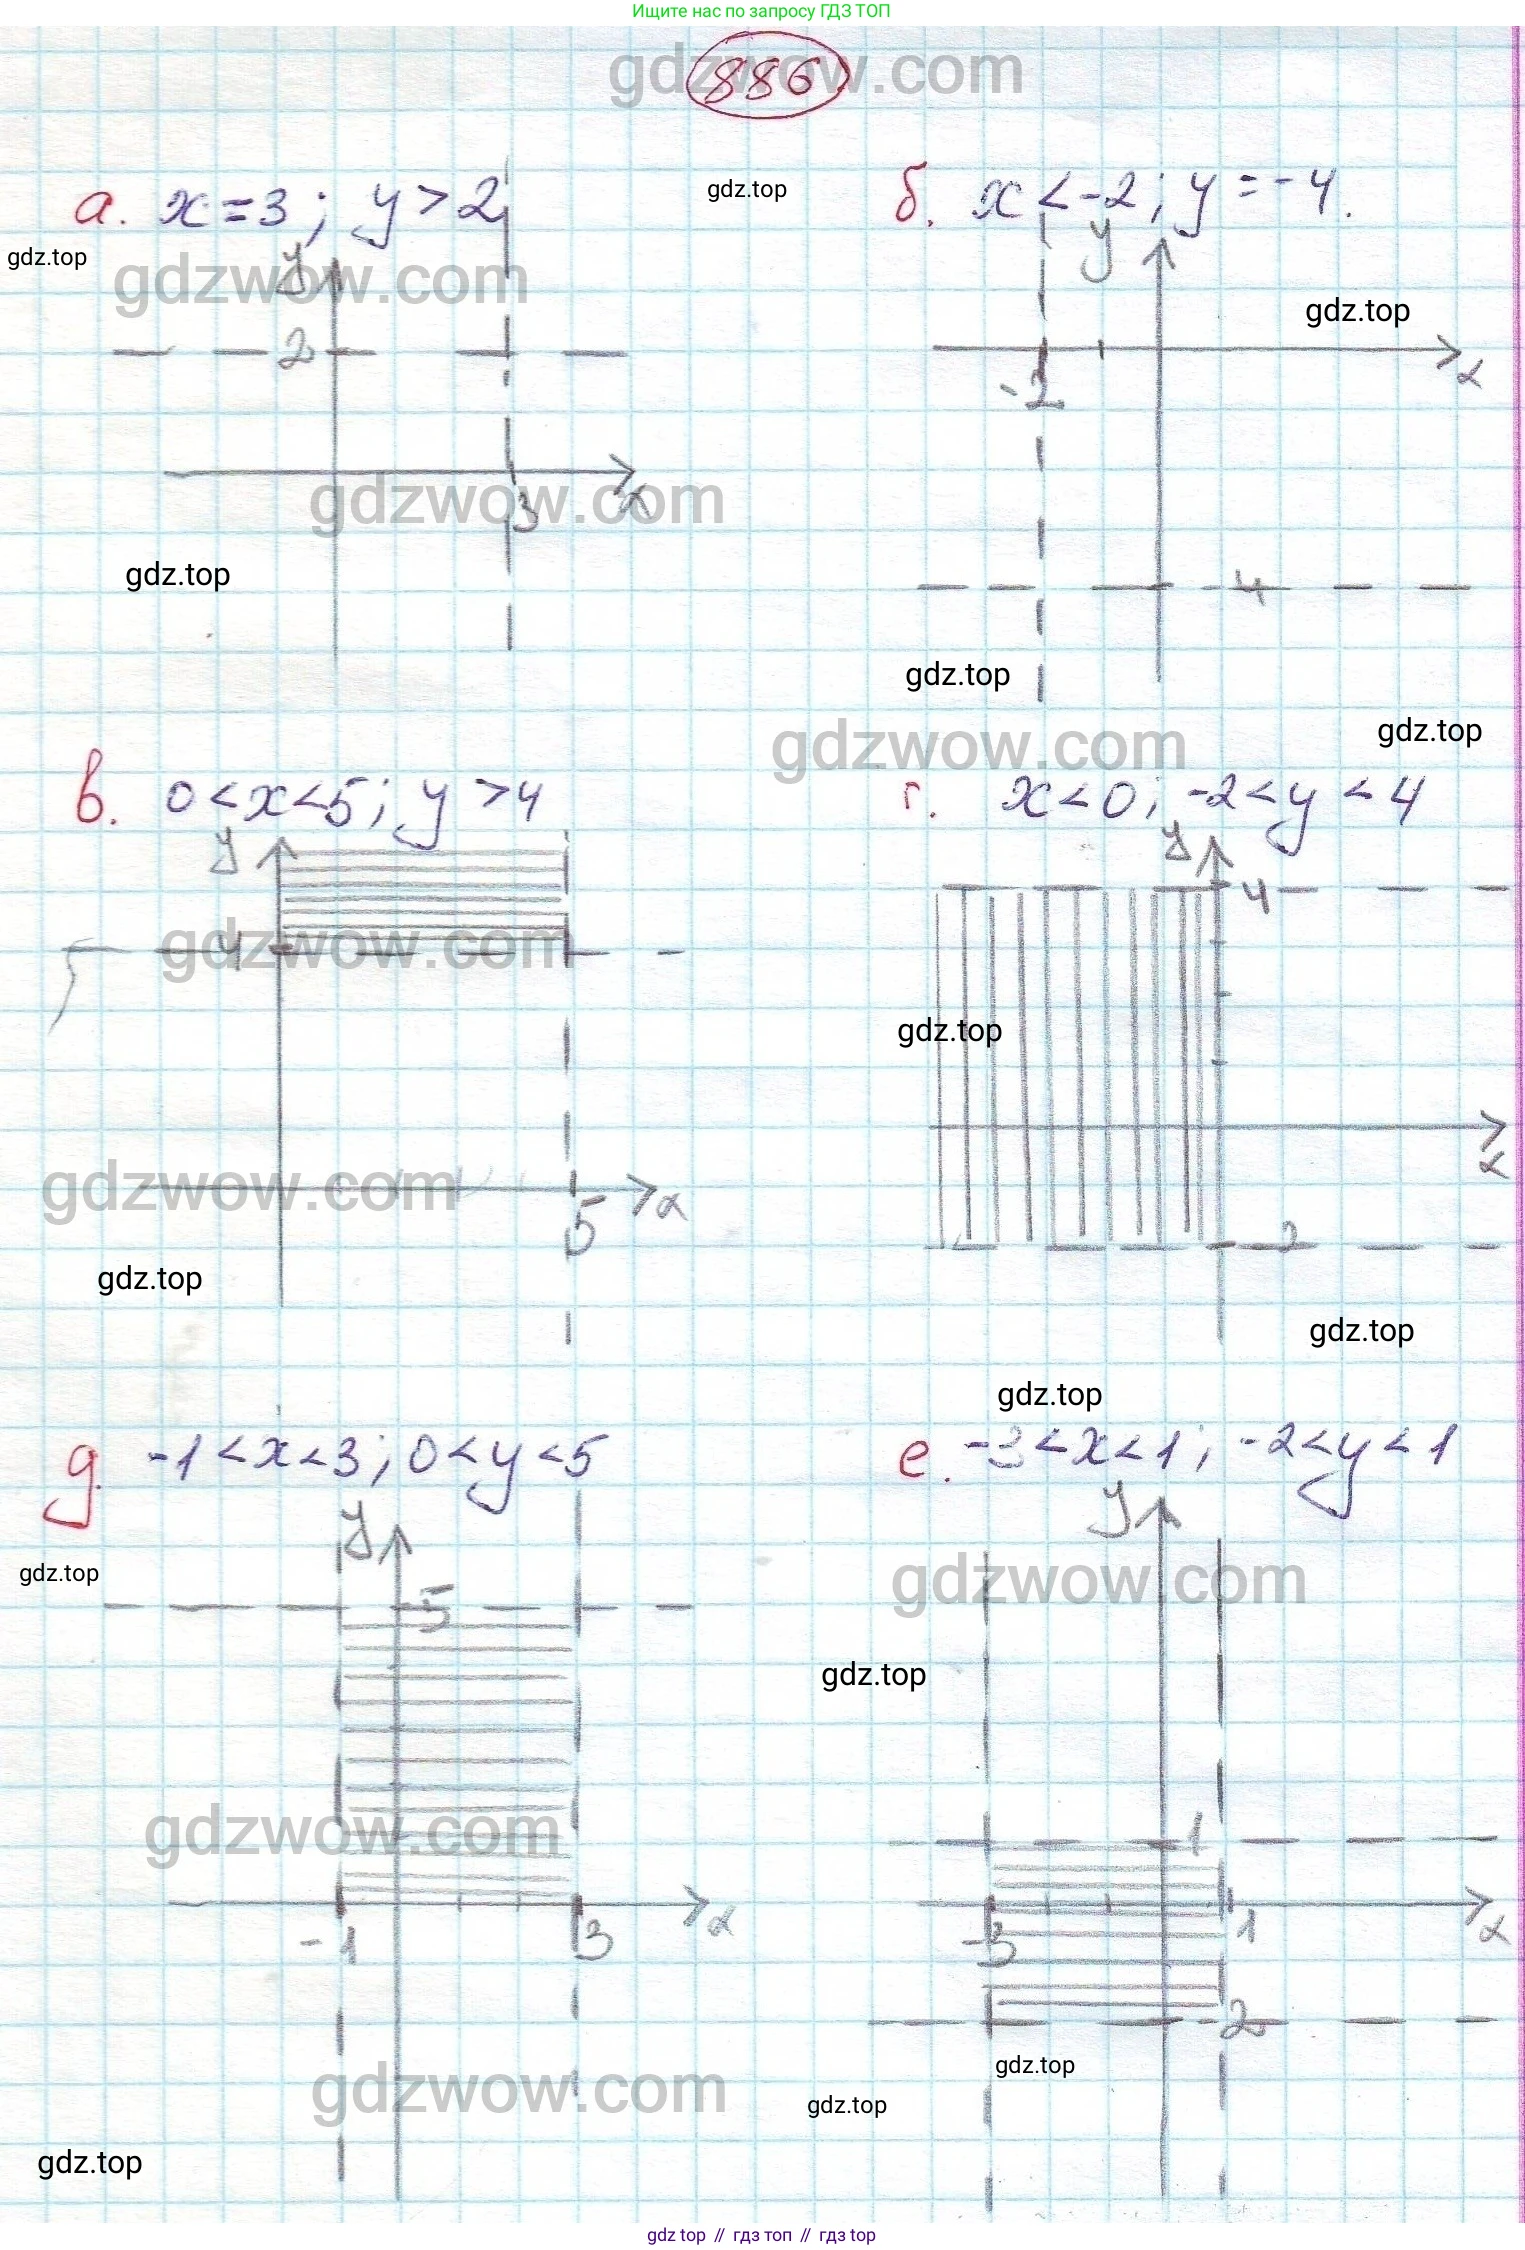 Ищите нас по запросу ГДЗ ТОП
gdzwow.com
886
а. x = 3; y > 2
gdz.top
б. x < -2; y = -4.
gdz.top
gdzwow.com
y
2
y
gdz.top
x
-2
gdzwow.com
3
x
gdz.top
-4
gdz.top
gdzwow.com
gdz.top
в. 0 < x < 5; y > 4
г. x < 0; -2 < y < 4
y
y
4
gdzwow.com
4
gdz.top
x
gdzwow.com
x
5
-2
gdz.top
gdz.top
gdz.top
д. -1 < x < 3; 0 < y < 5
е. -3 < x < 1; -2 < y < 1
y
y
gdz.top
5
gdzwow.com
gdz.top
gdzwow.com
1
-1
3
x
-3
1
x
-2
gdz.top
gdzwow.com
gdz.top
gdz.top
gdz top // гдз топ // гдз top